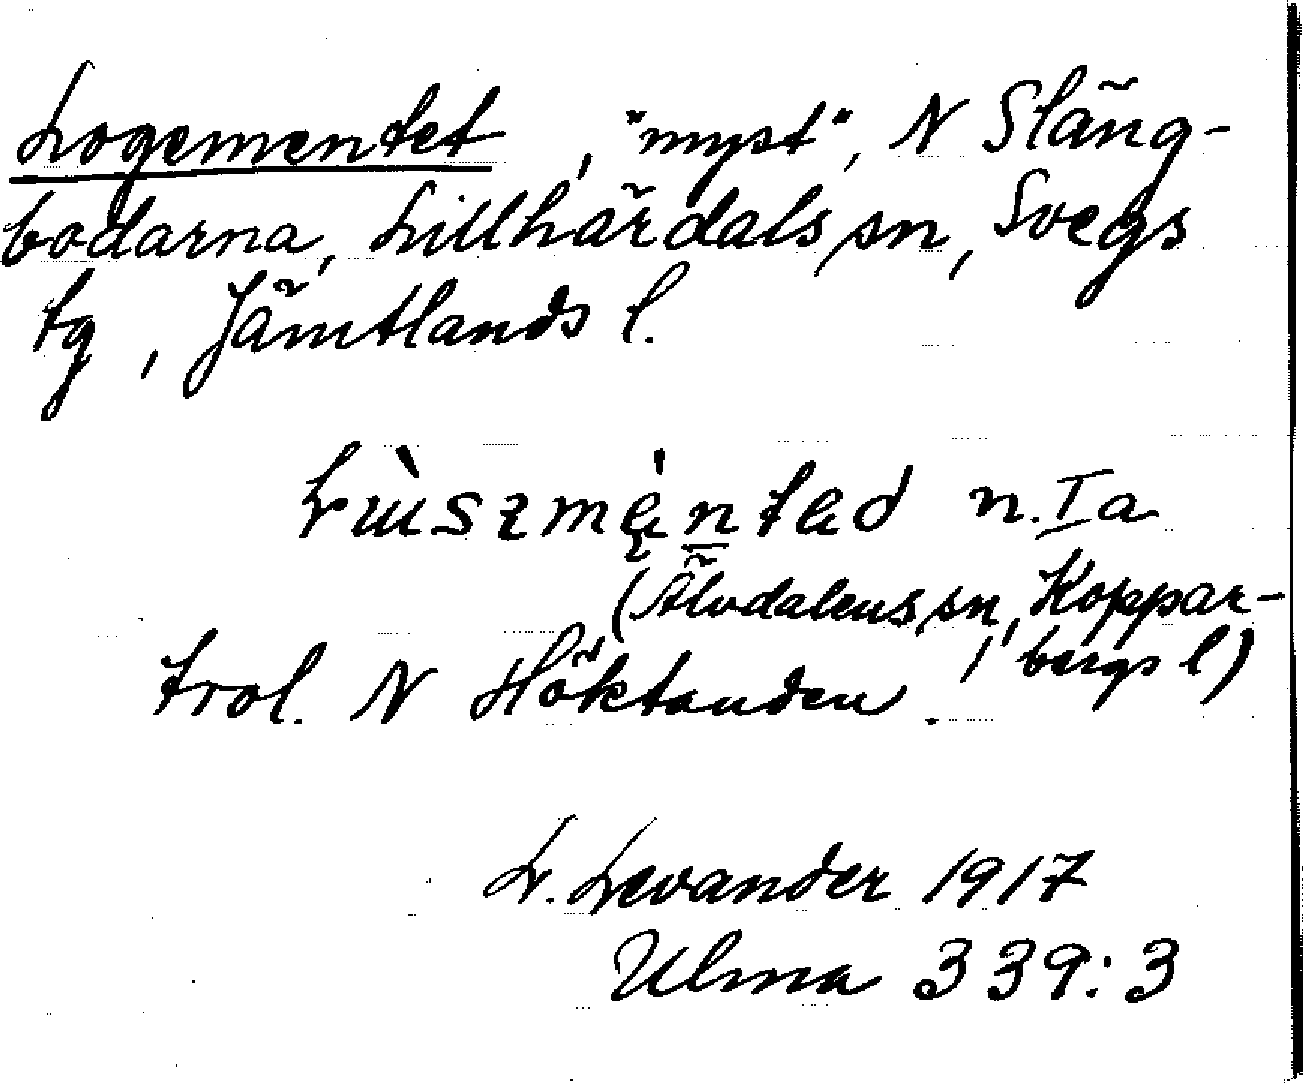 Logementet, "myst", N Släng-
bodarna, Lillhärdals sn, Svegs
tg, Jämtlands l.
n. Ia
(Älvdalens sn, Koppar-
bergs l)
trol. N Höktanden.
L. Levander 1917
Ulma 339:3